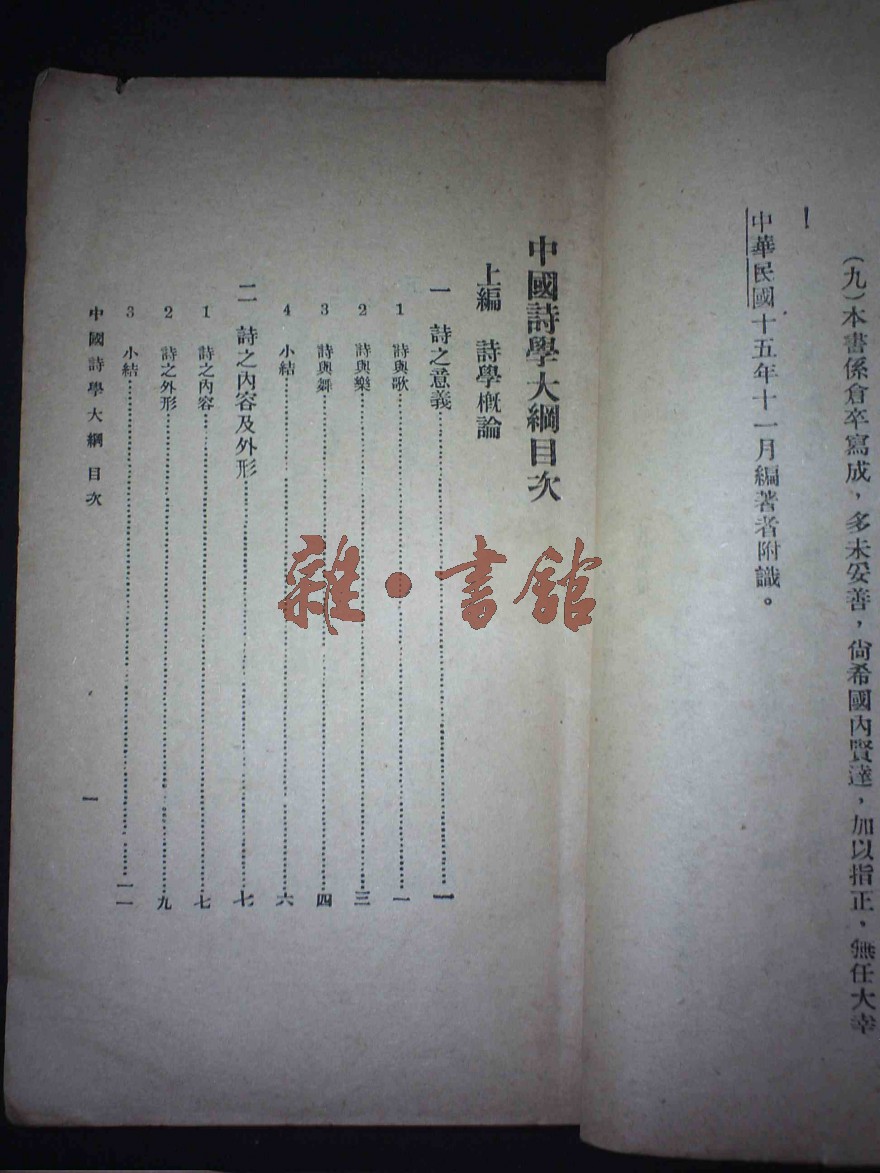 (九)本書係倉卒寫成，多未妥善，尙希國內賢達，加以指正，無任大幸
！
中華民國十五年十一月編著者附識。
中國詩學大綱目次
上編 詩學概論
一 詩之意義……一
1 詩與歌……一
2 詩與樂……三
3 詩與舞……四
4 小結……六
二 詩之內容及外形……七
1 詩之內容……七
2 詩之外形……九
3 小結……一一
中國詩學大綱 目次
一
雜·書館